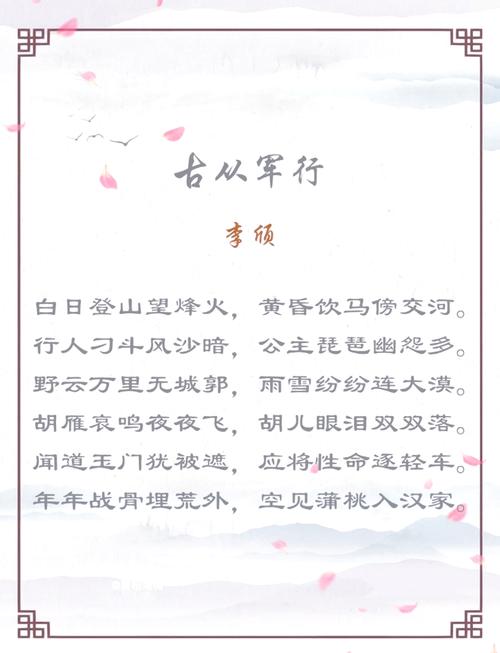 古从军行
李颀
白日登山望烽火，黄昏饮马傍交河。
行人刁斗风沙暗，公主琵琶幽怨多。
野云万里无城郭，雨雪纷纷连大漠。
胡雁哀鸣夜夜飞，胡儿眼泪双双落。
闻道玉门犹被遮，应将性命逐轻车。
年年战骨埋荒外，空见蒲桃入汉家。